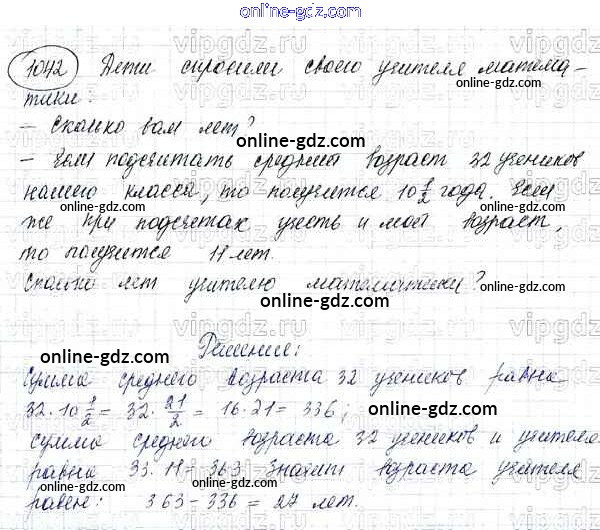 online-gdz.com
1042 Дети спросили своего учителя матема-
тики:
– Сколько вам лет?
online-gdz.com
– Если подсчитать средний возраст 32 учеников
нашего класса, то получится 10 1/2 года. Если
online-gdz.com
же при подсчетах учесть и мой возраст,
то получится 11 лет.
online-gdz.com
Сколько лет учителю математики?
online-gdz.com
Решение:
online-gdz.com
Сумма среднего возраста 32 учеников равна
32·10 1/2 = 32· 21/2 = 16·21 = 336;
online-gdz.com
сумма среднего возраста 32 учеников и учителя
online-gdz.com
равна 33·11=363 Значит возраста учителя
равен: 363-336=27 лет.
online-gdz.com